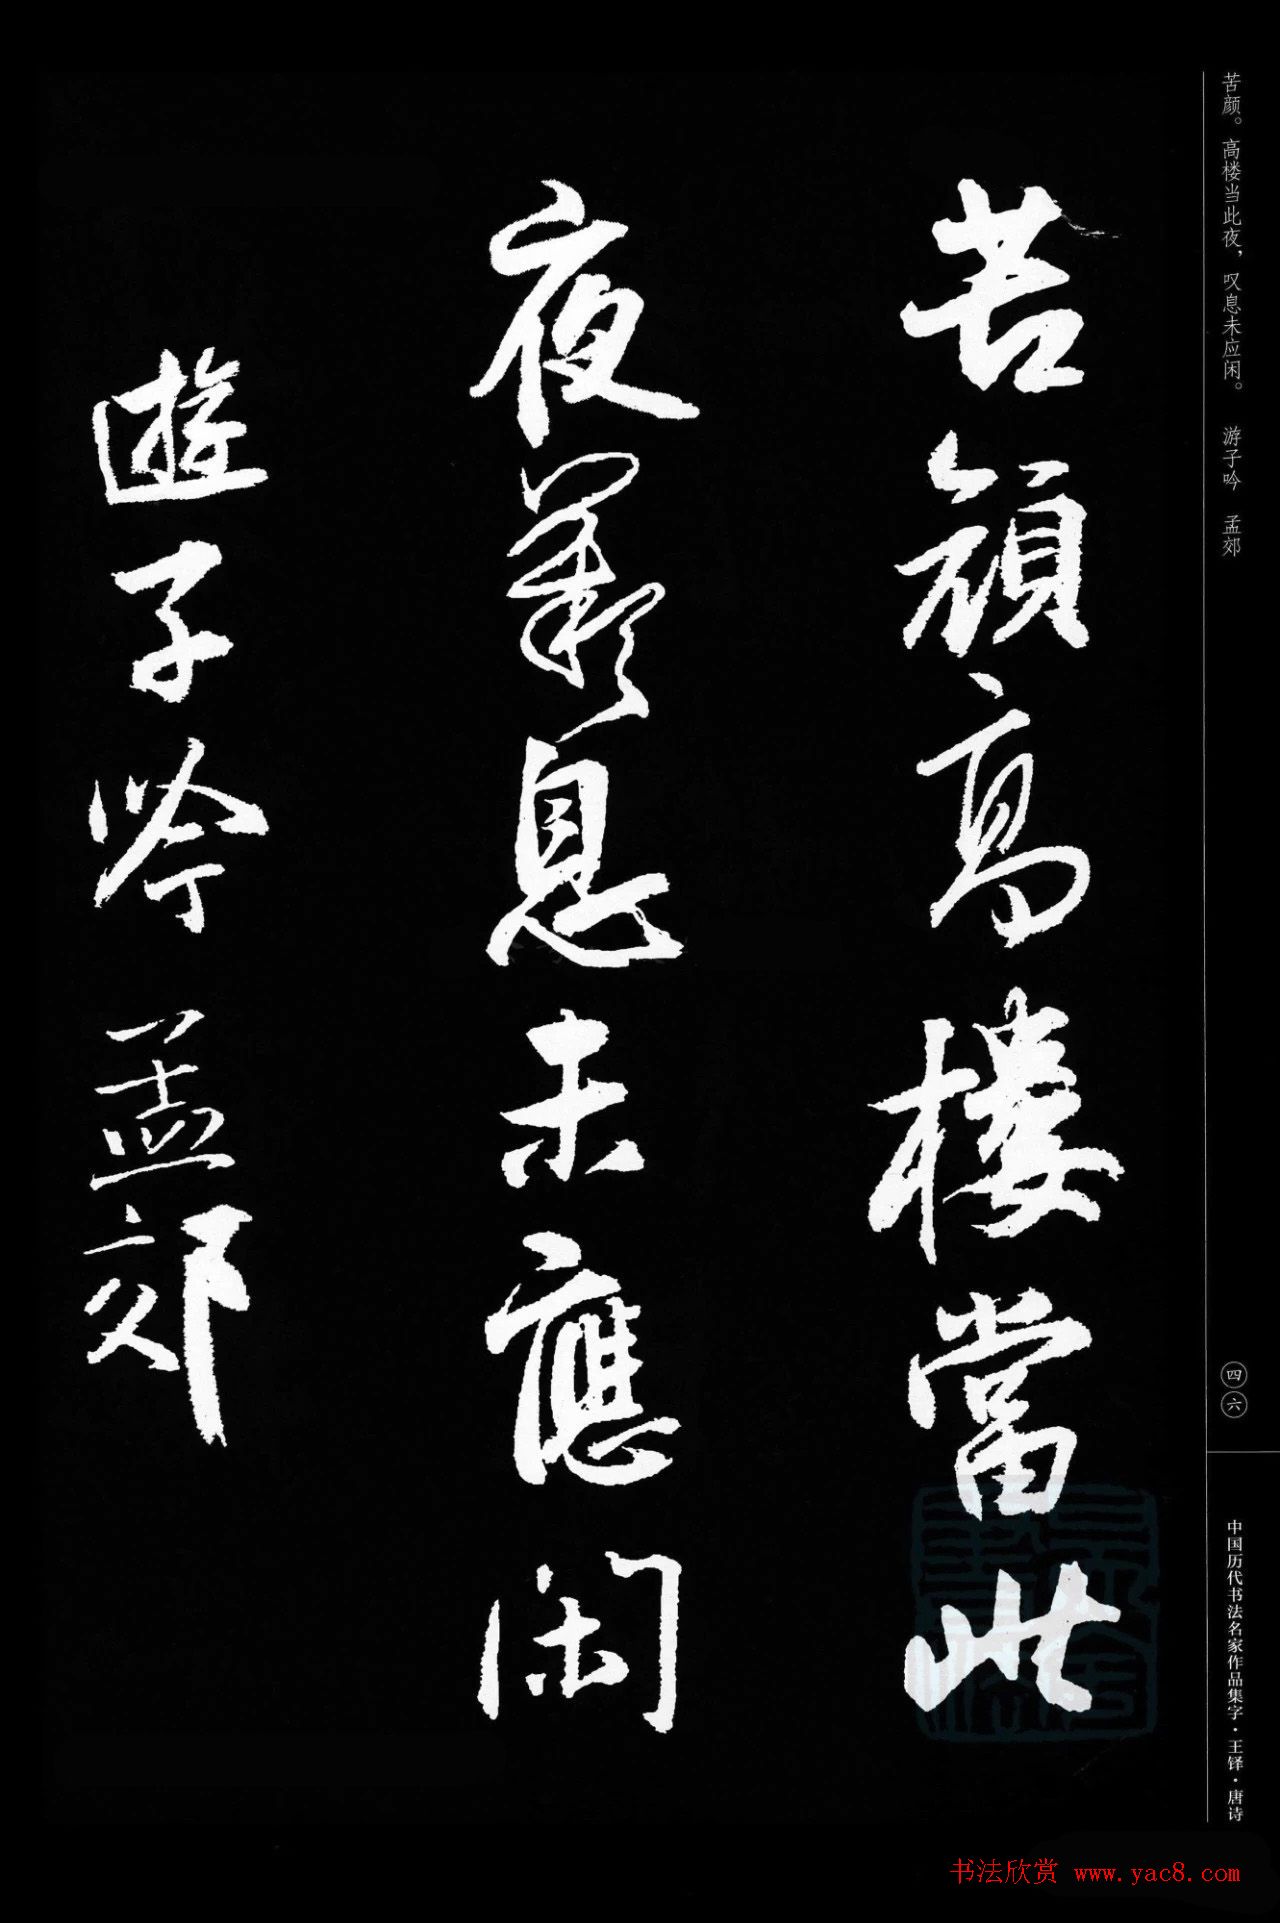 苦颜。高楼当此夜，叹息未应闲。　游子吟　孟郊
苦顔高樓當此
夜歎息未應閑
遊子吟 孟郊
四六
中国历代书法名家作品集字·王铎·唐诗
书法欣赏 www.yac8.com